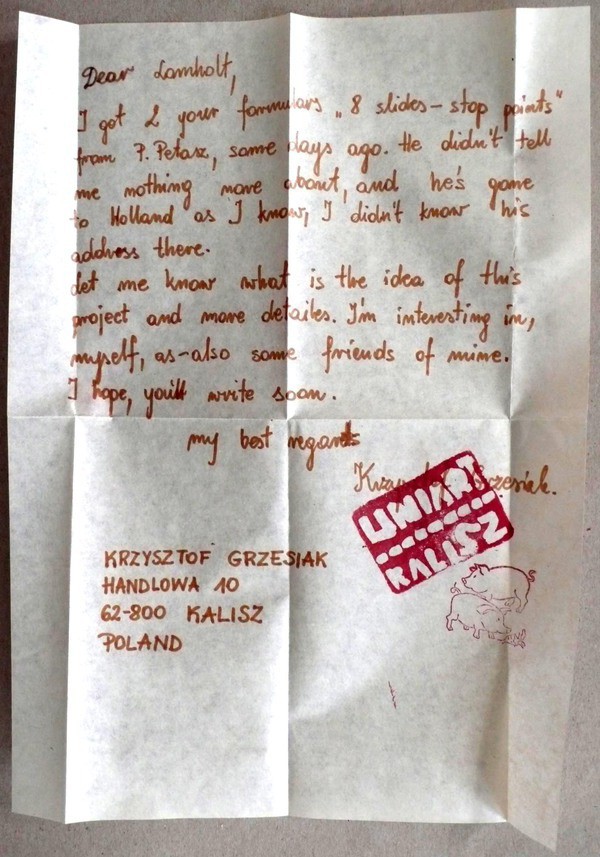 Dear Lomholt,
I got 2 your formulars „8 slides – stop points"
from P. Petasz, some days ago. He didn't tell
me nothing more about, and he's gone
to Holland as I know, I didn't know his
address there.
Let me know what is the idea of this
project and more detailes. I'm interesting in,
myself, as-also some friends of mine.
I hope, you'll write soon.
my best regards
UNI ART
KALISZ
KRZYSZTOF GRZESIAK
HANDLOWA 10
62-800 KALISZ
POLAND